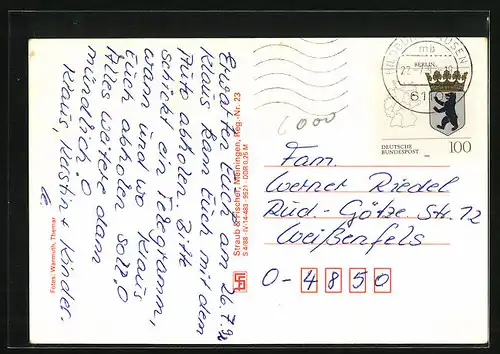 Erwarten Euch am 26.7.92
Klaus kam Euch mit dem
Auto abholen. Bitte
schickt ein Telegramm,
wann und wo Klaus
Euch abholen soll?!
Alles weitere dann
mündlich!
Klaus, Kerstin + Kinder.
Fotos: Warmuth, Themar
Straub & Fischer, Meiningen, Reg.-Nr. 23
S 4/88 · IV/14-483 9521 DDR 0,25 M
BERLIN
DEUTSCHE
BUNDESPOST
100
6000
Fam.
Werner Riedel
Rud.-Götze-Str. 12
Weißenfels
O-4850